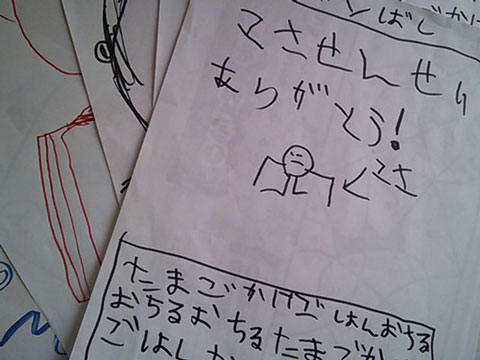 ンばし
マさせんせり
ありがとう!
マさ
たまごかけごはんおちる
おちるおちるたまごか
ごはん